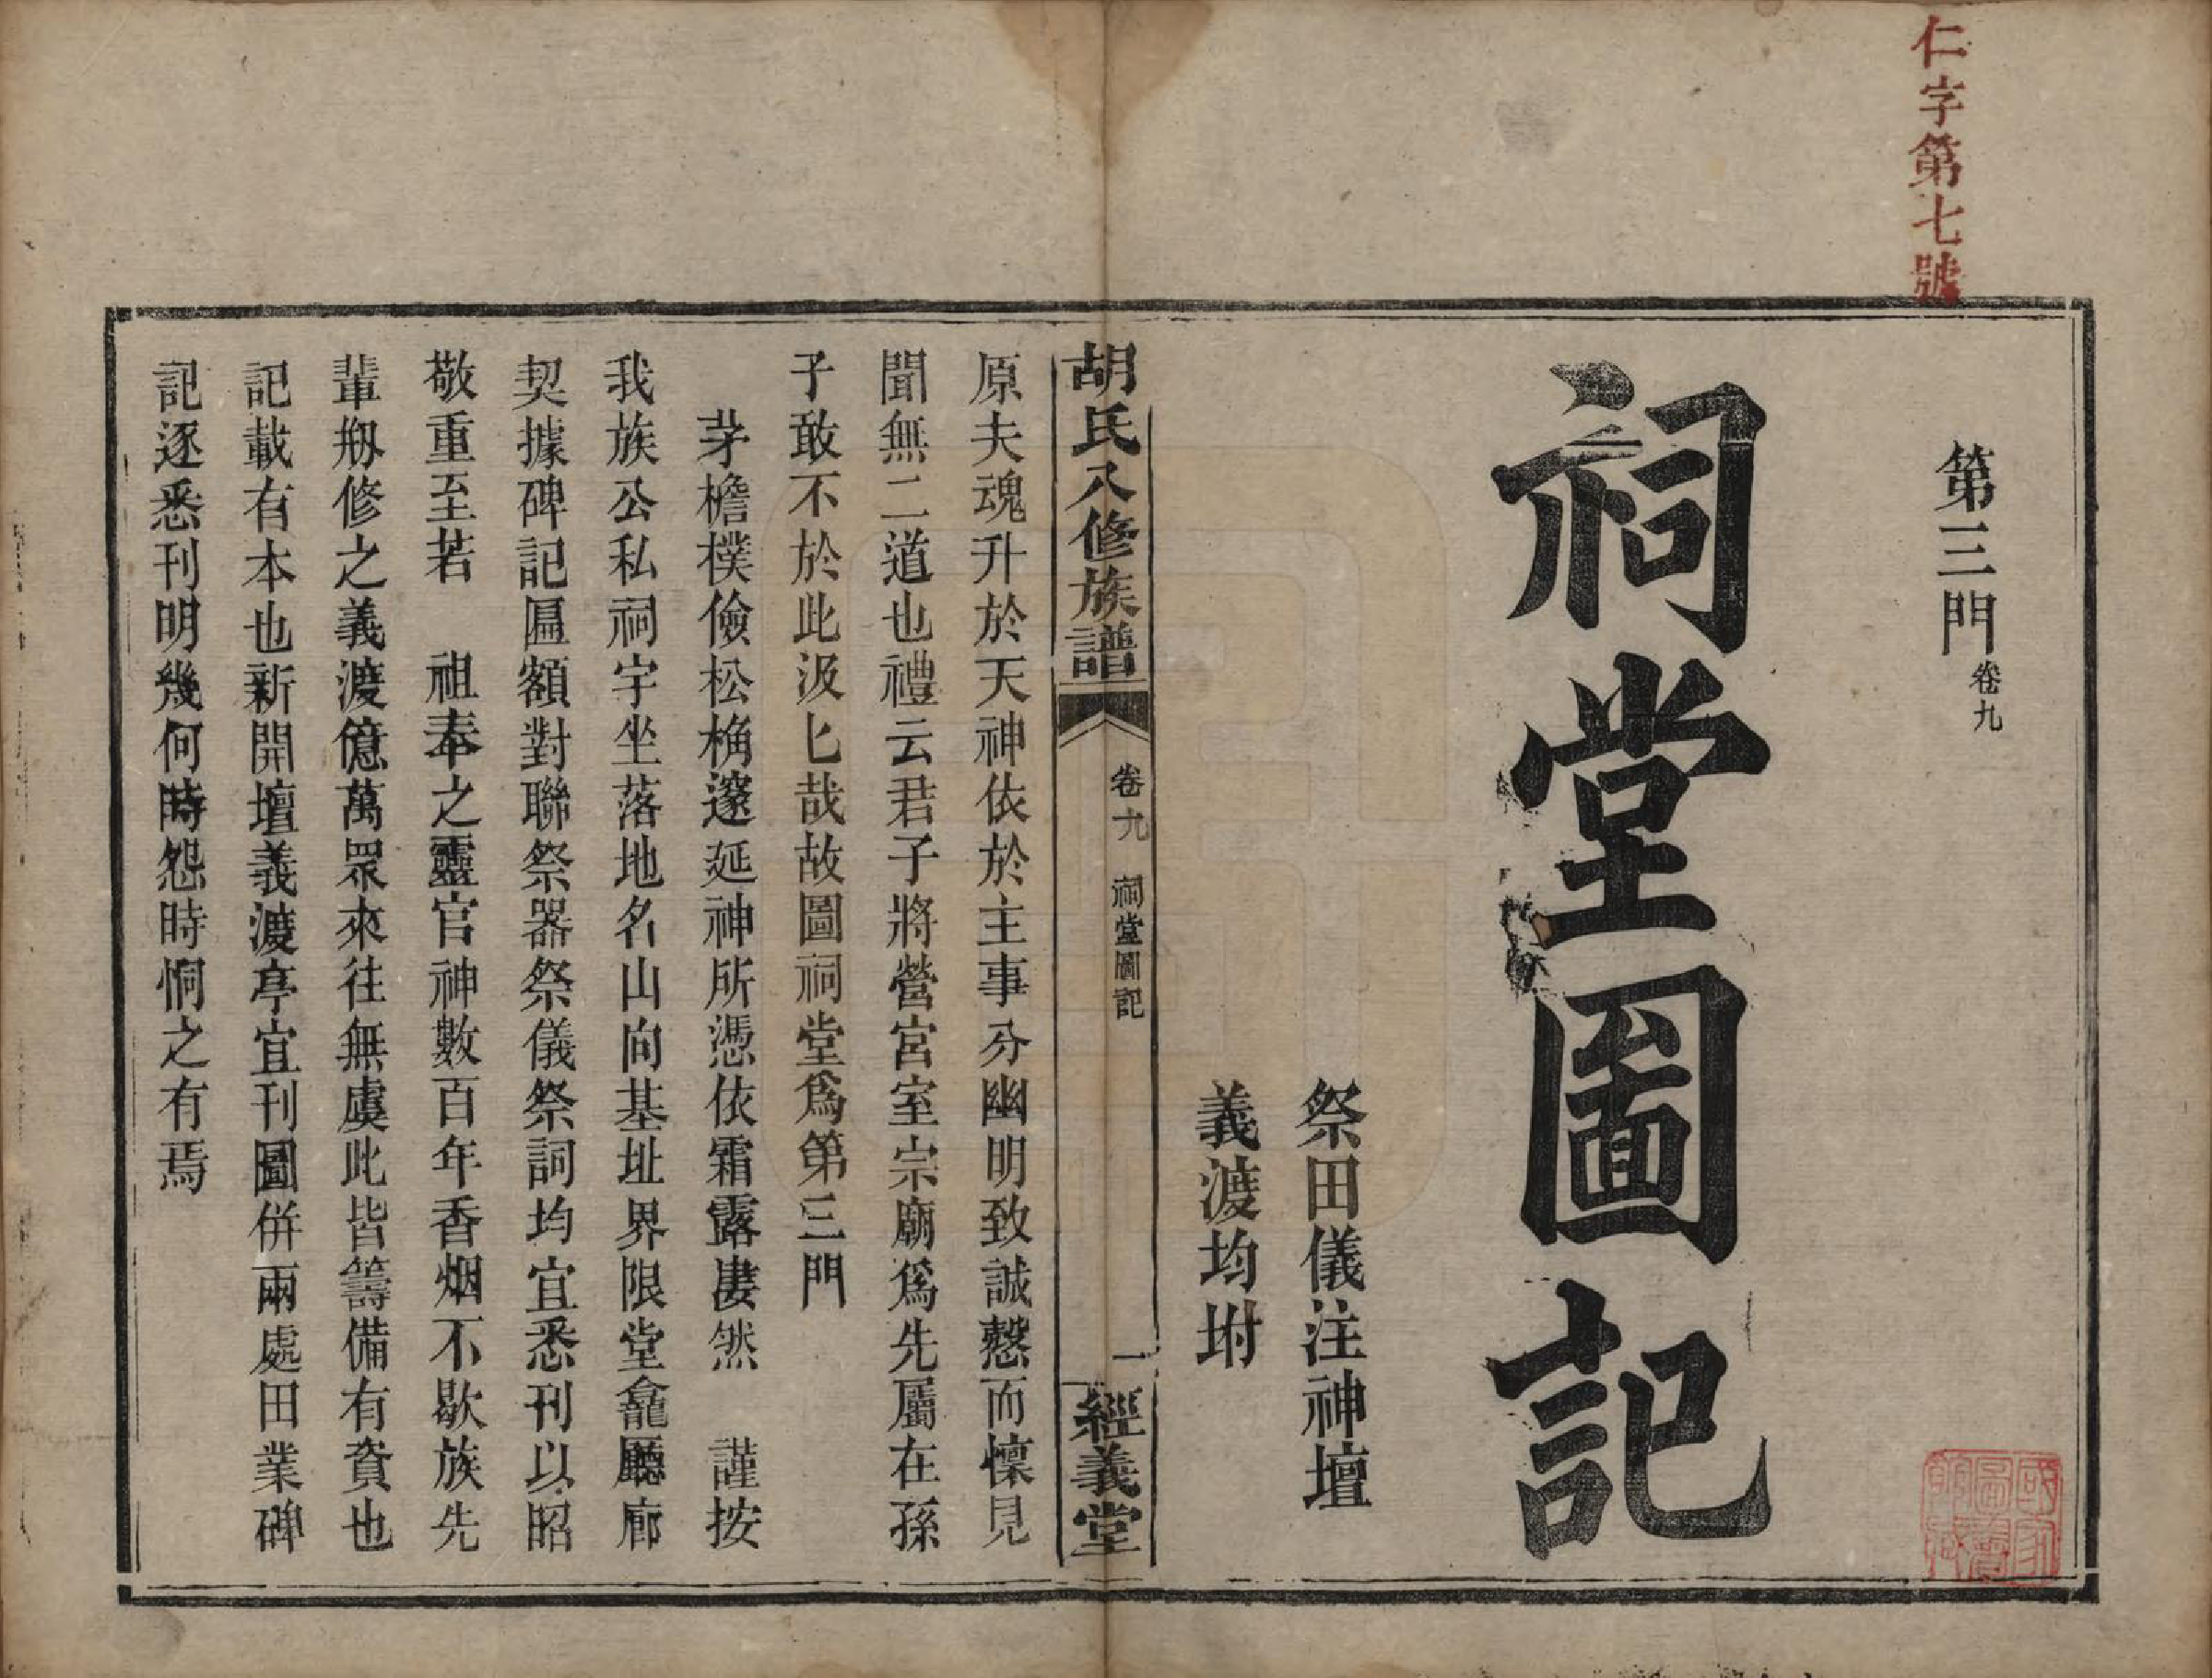 仁字第七號
第三門 卷九
祠堂圖記
祭田儀注神壇
義渡均坿
胡氏八修族譜 卷九 祠堂圖記 一 經義堂
原夫魂升於天神依於主事分幽明致誠慤而懍見
聞無二道也禮云君子將營宮室宗廟爲先屬在孫
子敢不於此汲匕哉故圖祠堂爲第三門
茅檐樸儉松桷邃延神所憑依霜露悽然 謹按
我族公私祠宇坐落地名山向基址界限堂龕廳廊
契據碑記匾額對聯祭器祭儀祭詞均宜悉刊以昭
敬重至若 祖奉之靈官神數百年香烟不歇族先
輩剏修之義渡億萬眾來往無虞此皆籌備有資也
記載有本也新開壇義渡亭宜刊圖併兩處田業碑
記逐悉刊明幾何時怨時恫之有焉
國家圖書館藏